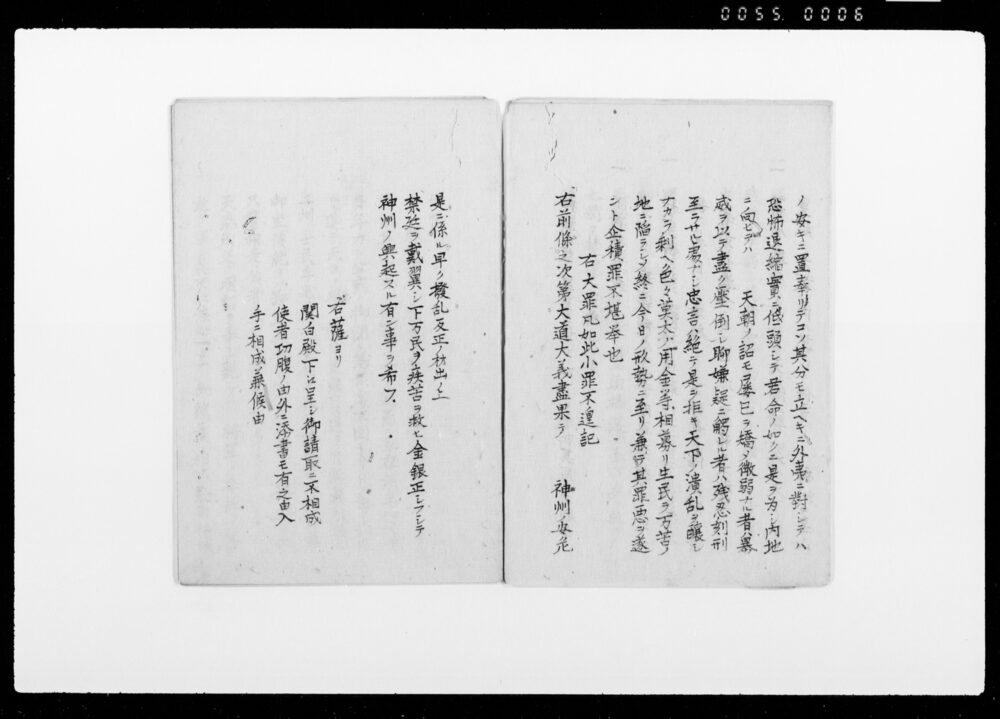 0055 0006
ノ安キニ置奉リデコソ其分モ立ヘキニ外夷ニ對シテハ
恐怖退縮實ニ低頭シテ君命ノ如クニ是ヲ為シ内地
ニ向ヒテハ 天朝ノ詔モ屡巳ヲ矯メ微弱ナル者ハ暴
威ヲ以テ盡ク壓倒シ聊嫌疑ニ觸レル者ハ残忍刻刑
至ラサル処ナシ忠言絶テ是ヲ拒キ天下ノ潰乱ヲ醸シ
ナカラ剰ヘ色々莫大ノ用金等相募リ生民ヲ万苦ノ
地ニ陥ラシメ終ニ今日ノ形勢ニ至リ兼テ其罪悪ヲ遂
ント企積罪不堪挙也
右大罪凡如此小罪不遑記
右前條之次第大道大義盡果テ 神州ノ安危
是ニ係ル早ク撥乱反正ノ材出テ上
禁廷ヲ戴翼シ下万民ヲ疾苦ヲ救ヒ金銀正シフシテ
神州ノ興起スル有ン事ヲ希フ
右薩ヨリ
関白殿下ヘ呈シ御請取ニ不相成
使者切腹ノ由外ニ添書モ有之由入
手ニ相成兼候由